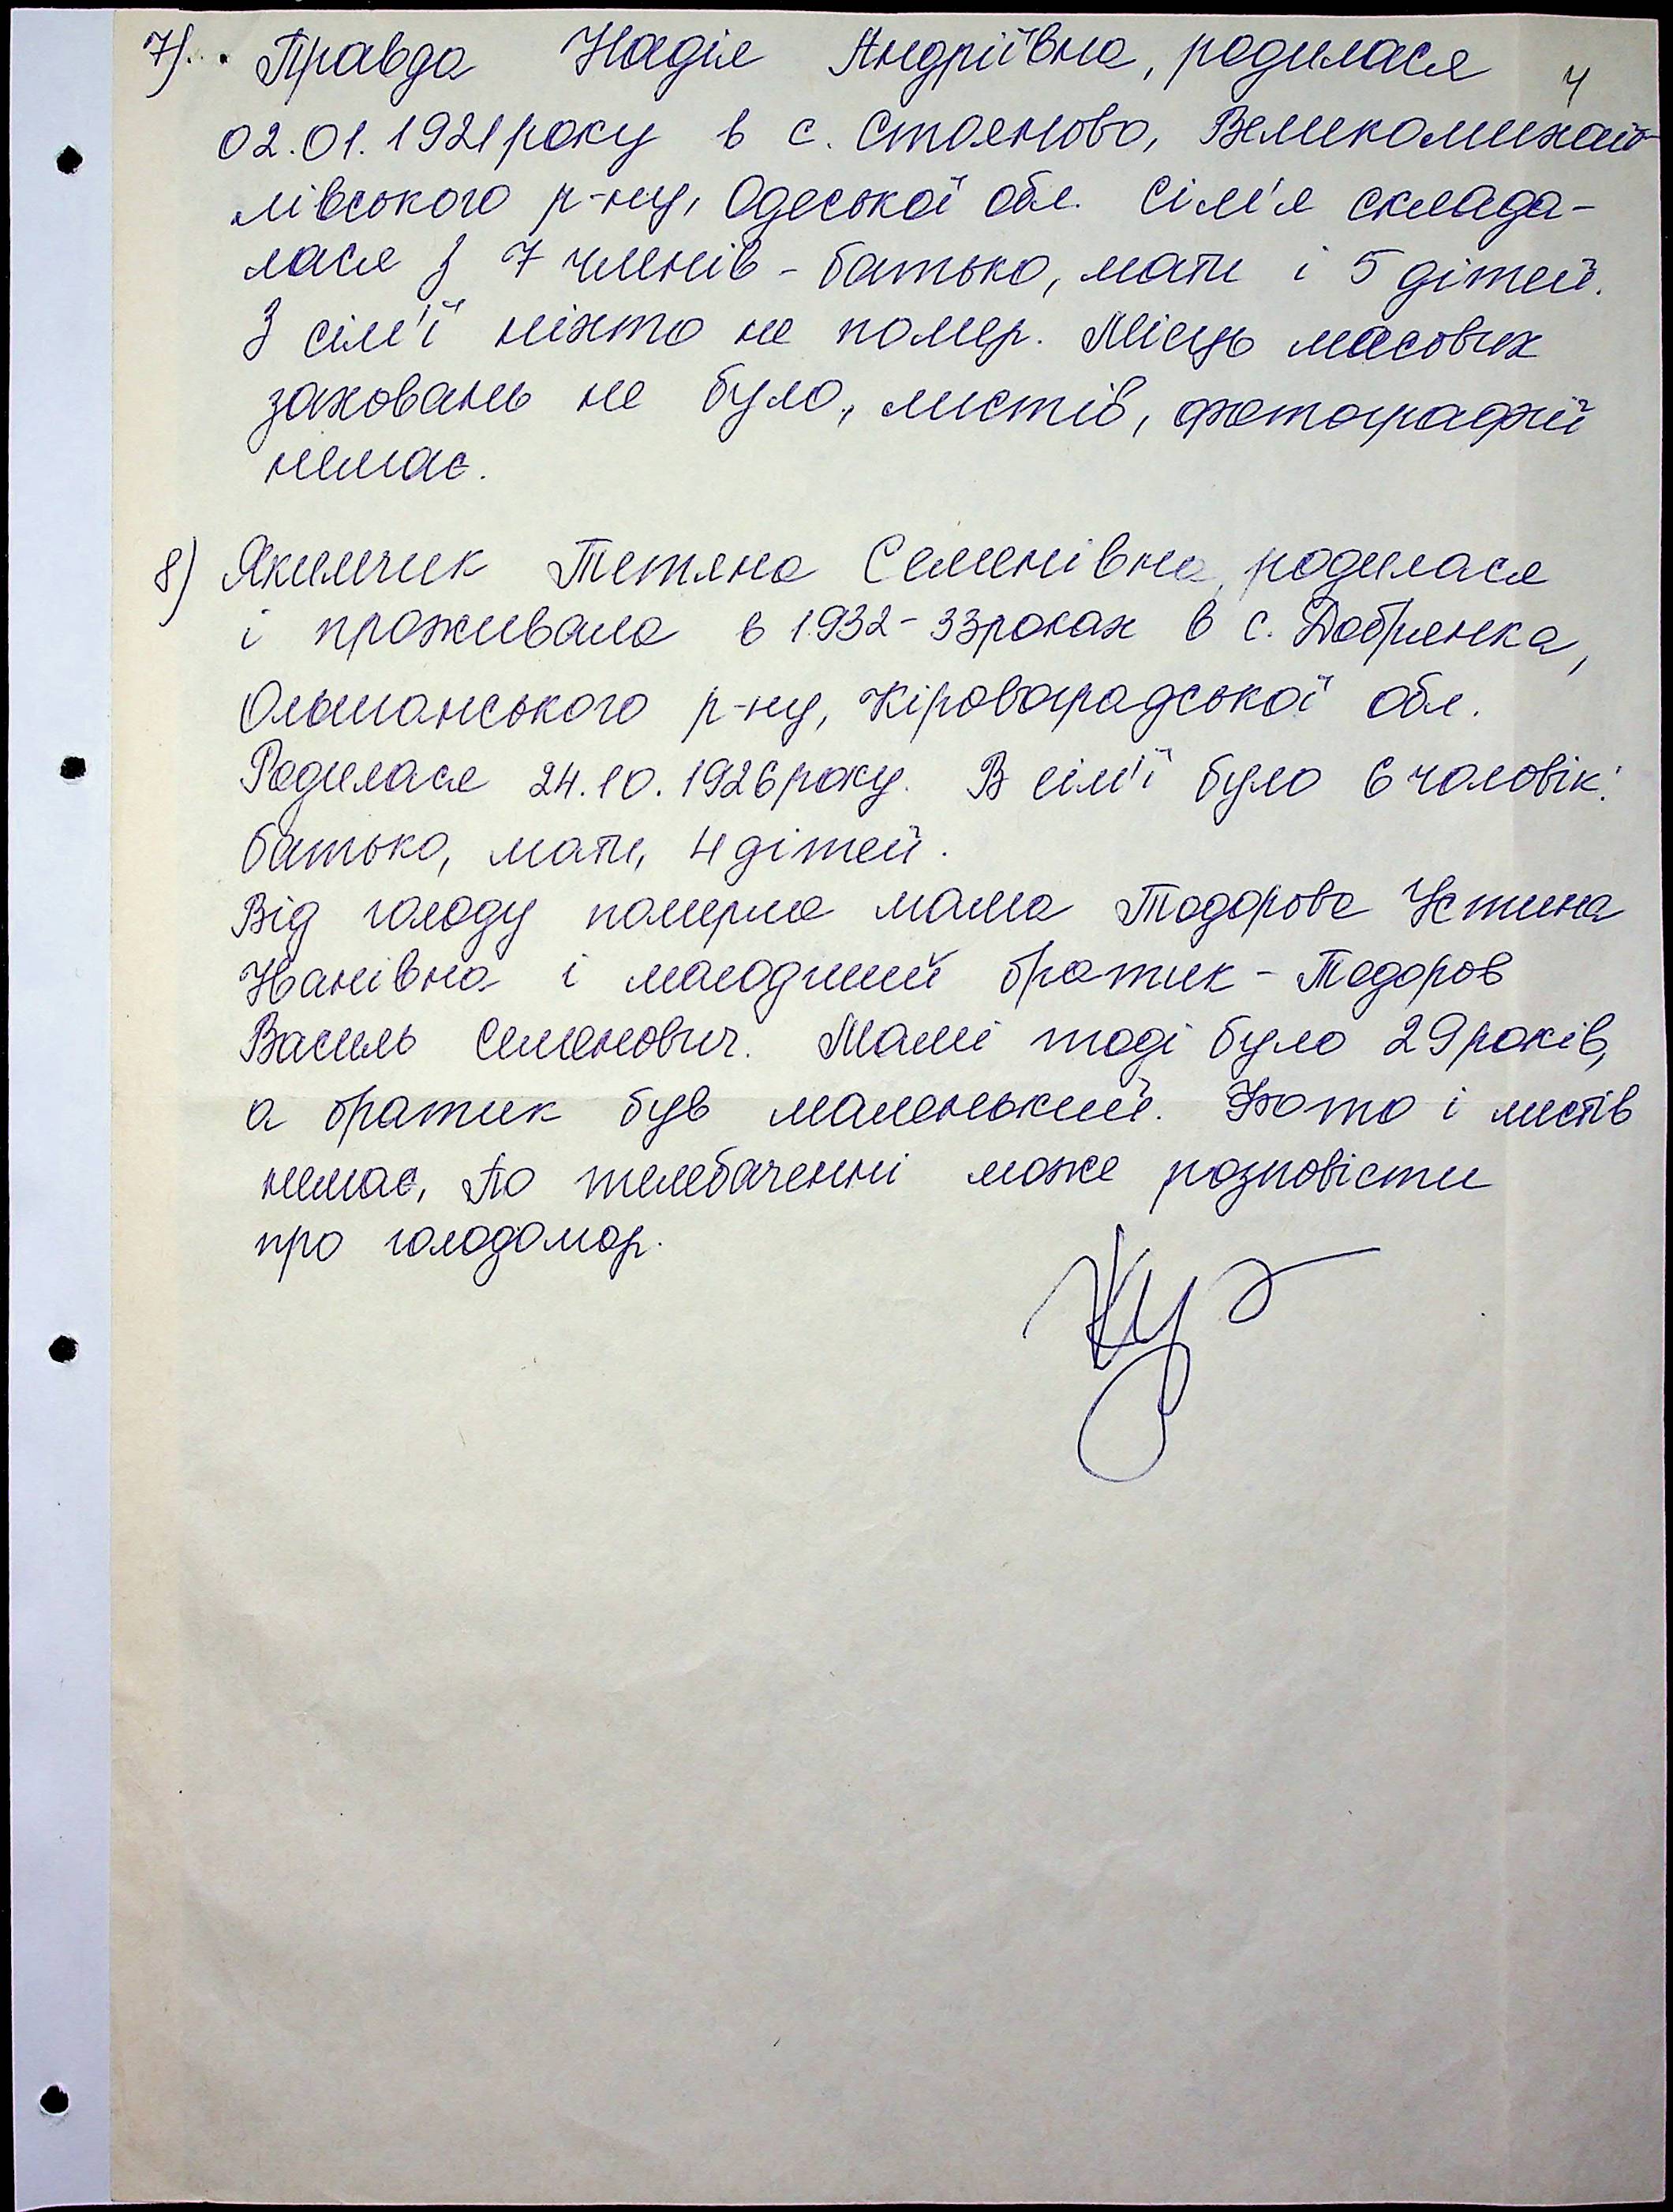 7). Правда Надія Андріївна, родилася
4
02.01.1921 року в с. Стояново, Великомихай-
лівського р-ну, Одеської обл. Сім'я склада-
лася з 7 членів - батько, мати і 5 дітей.
З сім'ї ніхто не помер. Місць масових
заховань не було, листів, фотографій
немає.
8) Якимчик Тетяна Семенівна, родилася
і проживала в 1932-33 роках в с. Добрянка,
Ольшанського р-ну, Кіровоградської обл.
Родилася 24.10.1926 року. В сім'ї було 6 чоловік:
батько, мати, 4 дітей.
Від голоду померла мама Тодорова Устина
Іванівна і молодший братик - Тодоров
Василь Семенович. Мамі тоді було 29 років,
а братик був маленький. Фото і листів
немає, по телебаченні може розповісти
про голодомор.